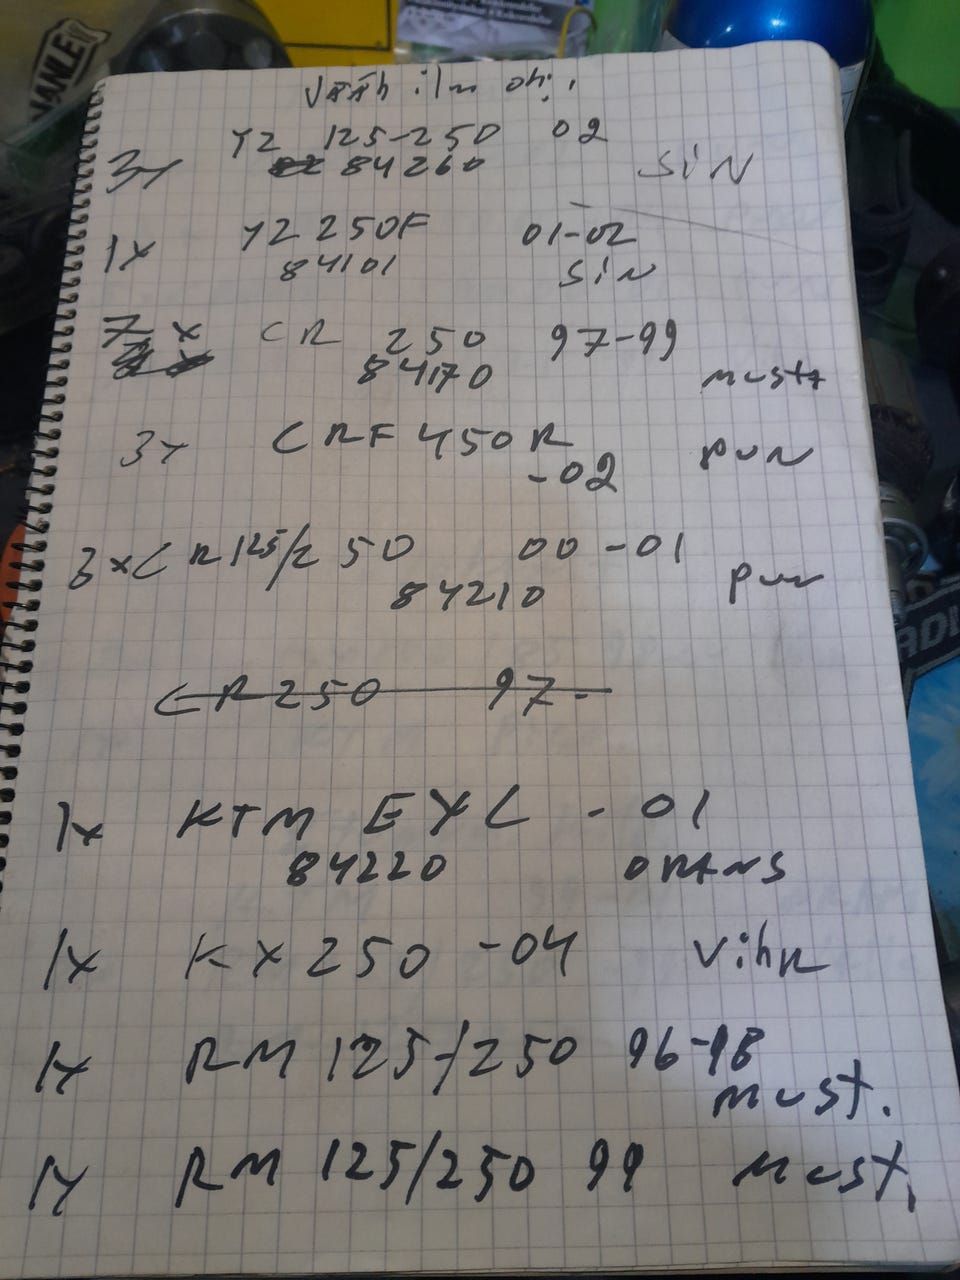 YZ 125-250 02
3x 84260 SIN
YZ 250F 01-02
1x 84101 SIN
7 x CR 250 97-99
84170 musta
3x CRF 450R pun
-02
3xCR 125/250 00-01
84210 pun
CR 250 97-
1x KTM EXC - 01
84220 ORANS
1x KX 250 -04 Vihr
1x RM 125/250 96-98
must.
1x RM 125/250 99 must.